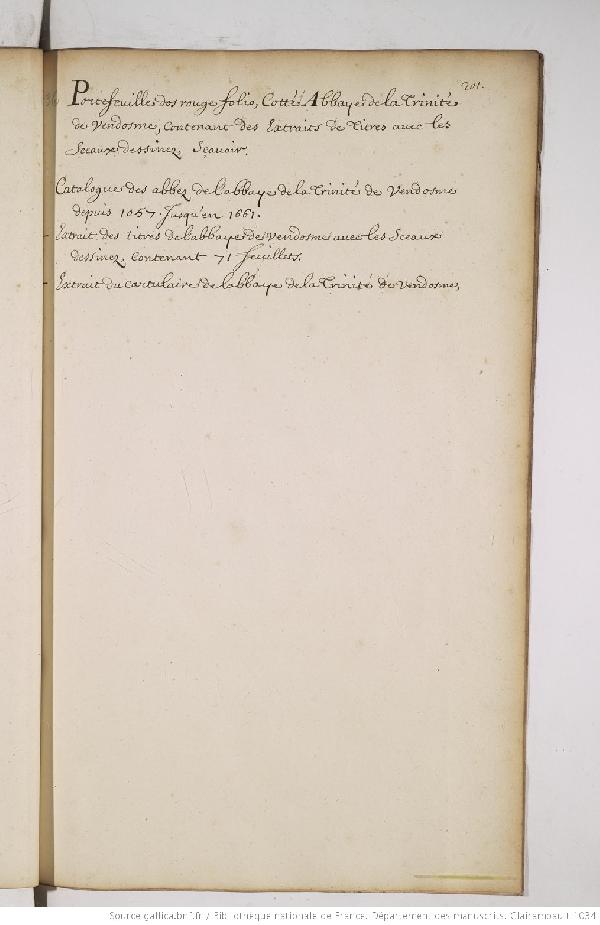 201.
Portefeuille dos rouge folio, Cotté Abbaye de la Trinité
de Vendosme, contenant des Extraits de Titres avec les
Sceaux dessinez, Sçauoir.
Catalogue des abbez de l'abbaye de la Trinité de Vendosme
depuis 1057. Jusqu'en 1661.
Extrait des titres de l'abbaye de Vendosme avec les Sceaux
dessinez, contenant 71 feuillets.
Extrait du cartulaire de l'abbaye de la Trinité de Vendosme,
Source gallica.bnf.fr / Bibliothèque nationale de France. Département des manuscrits. Clairambault 1034